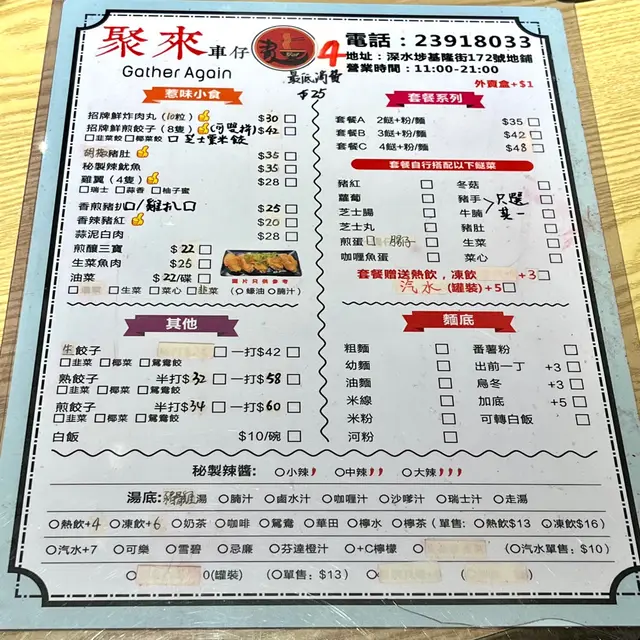 聚來 車仔
Gather Again
4
最低消費
$25
電話：23918033
地址：深水埗基隆街172號地鋪
營業時間：11:00-21:00
外賣盒+$1
惹味小食
招牌鮮炸肉丸 (10粒) $30
招牌鮮煎餃子 (8隻) (可雙拼) $42
韮菜餃 椰菜餃 芝士粟米餃
胡椒豬肚 $35
秘製辣魷魚 $35
雞翼 (4隻) $28
瑞士 蒜香 柚子蜜
香煎豬扒/雞扒 $25
香辣豬紅 $20
蒜泥白肉 $28
煎釀三寶 $22
生菜魚肉 $25
油菜 $22/碟
生菜 菜心 韮菜 (蠔油 腩汁)
圖片只供參考
套餐系列
套餐A 2餸+粉/麵 $35
套餐B 3餸+粉/麵 $42
套餐C 4餸+粉/麵 $48
套餐自行搭配以下餸菜
豬紅 冬菇
蘿蔔 豬手
芝士腸 牛腩 只選其一
芝士丸 豬肚
煎蛋 腸仔 生菜
咖喱魚蛋 菜心
套餐贈送熱飲，凍飲 +3
汽水 (罐裝) +5
其他
生餃子 一打$42
韮菜 椰菜 鴛鴦餃
熟餃子 半打$32 一打$58
韮菜 椰菜 鴛鴦餃
煎餃子 半打$34 一打$60
韮菜 椰菜 鴛鴦餃
白飯 $10/碗
麵底
粗麵 番薯粉
幼麵 出前一丁 +3
油麵 烏冬 +3
米線 加底 +5
米粉 可轉白飯
河粉
秘製辣醬： 小辣 中辣 大辣
湯底： 湯 腩汁 鹵水汁 咖喱汁 沙嗲汁 瑞士汁 走湯
熱飲+4 凍飲+6 奶茶 咖啡 鴛鴦 華田 檸水 檸茶 (單售： 熱飲$13 凍飲$16)
汽水+7 可樂 雪碧 忌廉 芬達橙汁 +C檸檬 (汽水單售：$10)
(罐裝) (單售：$13)